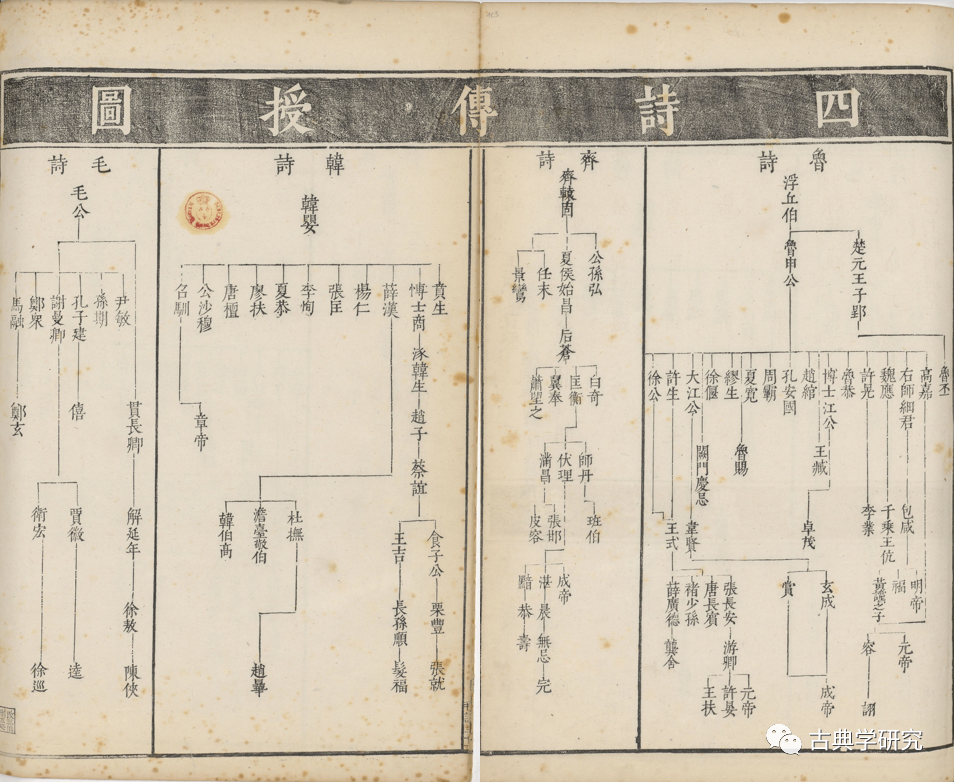 四詩傳授圖
魯詩
浮丘伯
楚元王子郢
魯申公
魯丕
高嘉
右師細君
魏應
許晃
魯恭
博士江公
趙綰
孔安國
周霸
夏寬
繆生
徐偃
大江公
許生
徐公
王臧
魯賜
闕門慶忌
包咸
千乘王伉
李業
卓茂
韋賢
王式
明帝
福
黃讜之子
玄成
賞
張長安
唐長賓
褚少孫
薛廣德
元帝
容
游卿
龔舍
詡
成帝
元帝
許晏
王扶
齊詩
齊轅固
公孫弘
夏侯始昌
任末
景鸞
后蒼
白奇
匡衡
翼奉
蕭望之
師丹
伏理
滿昌
班伯
張邯
皮容
成帝
湛
黯
晨
恭
無忌
壽
完
韓詩
韓嬰
賁生
博士商
薛漢
楊仁
張匡
李恂
夏恭
廖扶
唐檀
公沙穆
召馴
涿韓生
趙子
蔡誼
章帝
杜撫
澹臺敬伯
韓伯高
食子公
王吉
栗豐
長孫順
張就
髮福
趙曄
毛詩
毛公
尹敏
孫期
孔子建
謝曼卿
鄭眾
馬融
貫長卿
僖
鄭玄
解延年
賈徽
衛宏
徐敖
陳俠
逵
徐巡
古典学研究